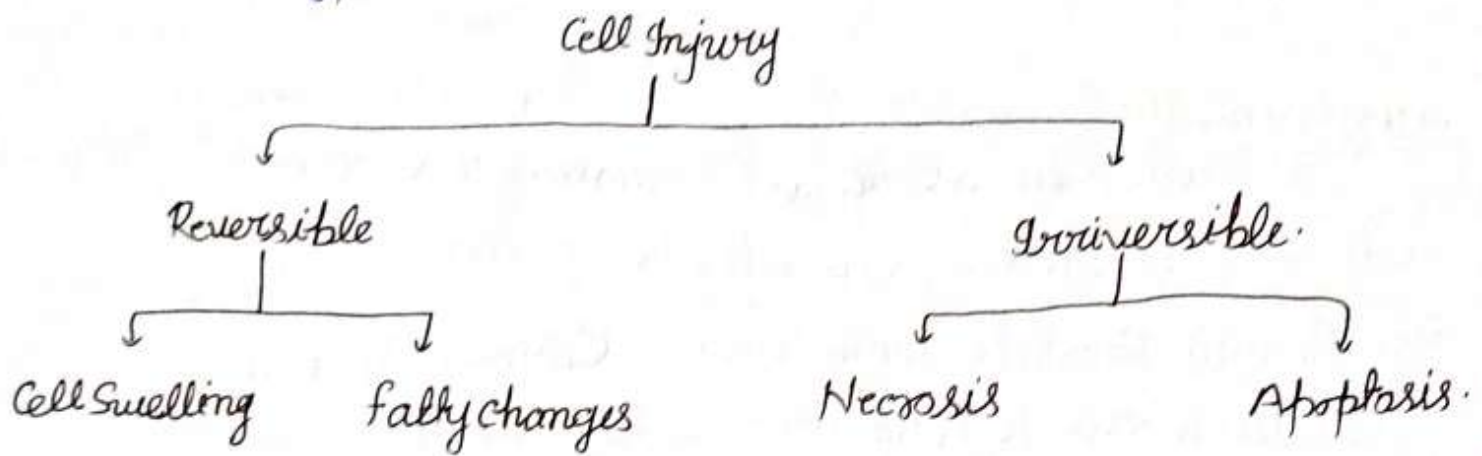 Cell Injury
Reversible Irriversible.
Cell Swelling fatty changes Necrosis Apoptosis.